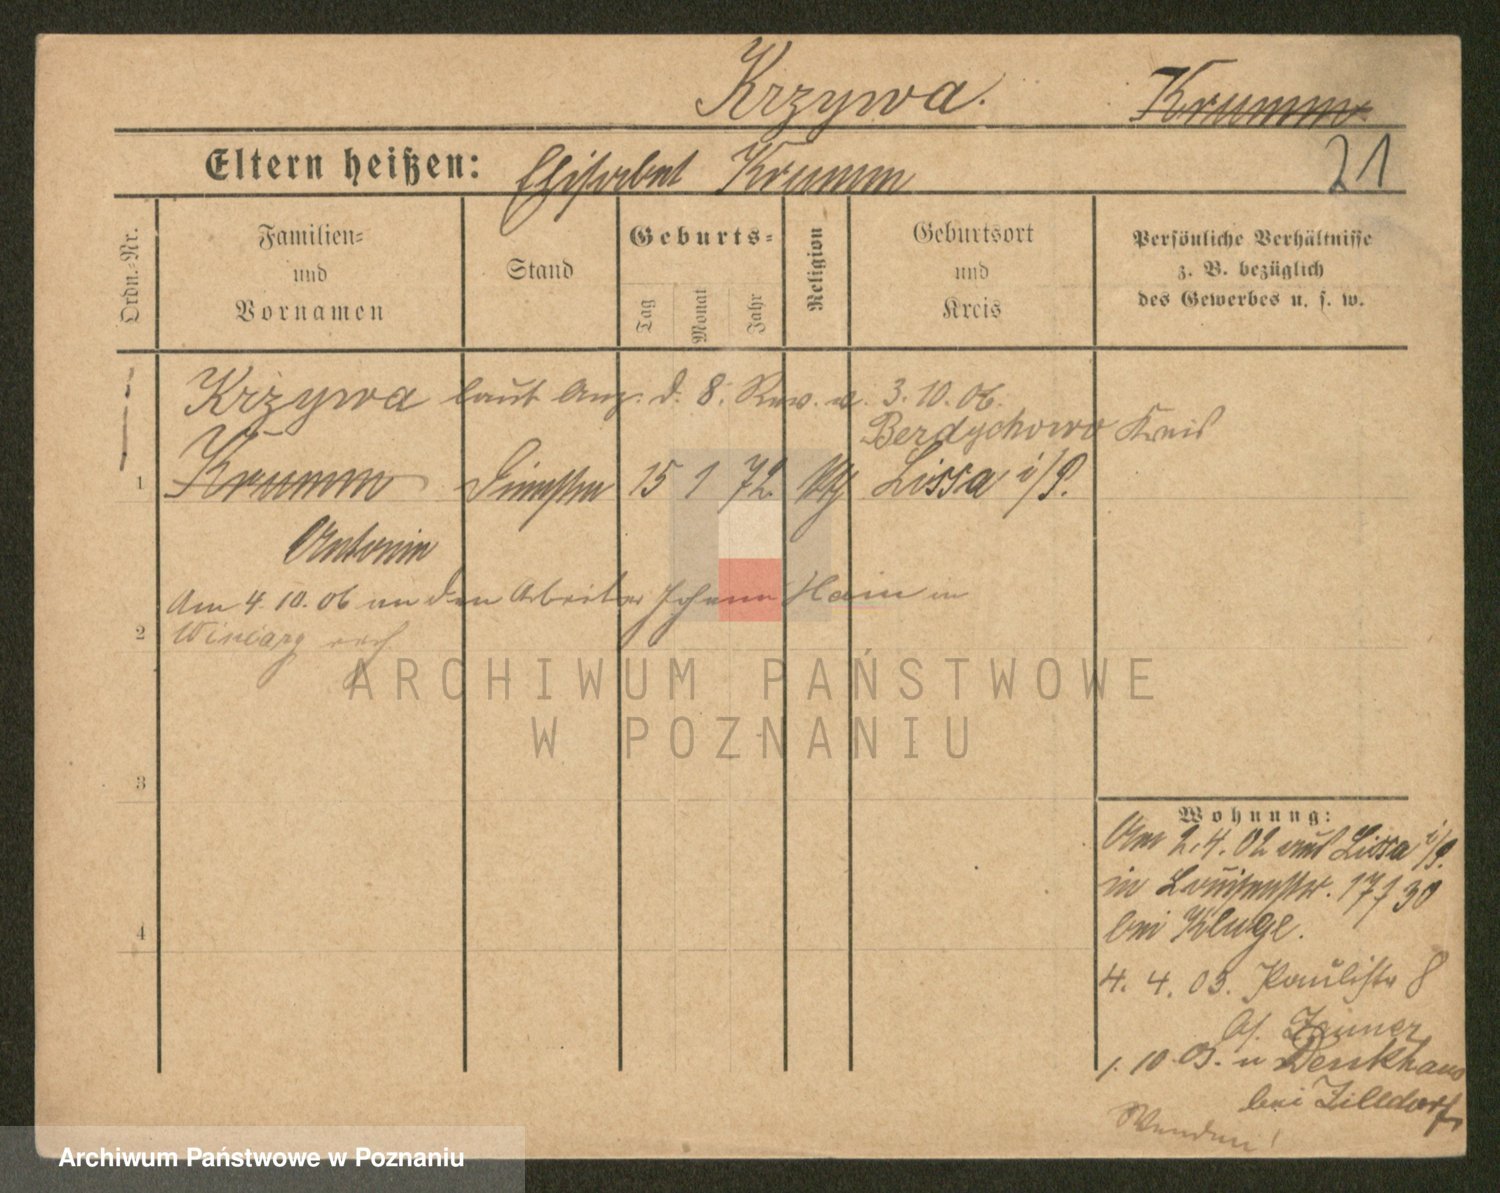 Krzywa. Krumm
Eltern heißen: Elisabet Krumm
21
Ordn.-Nr.
Familien-
und
Vornamen
Stand
Geburts-
Tag
Monat
Jahr
Religion
Geburtsort
und
Kreis
Persönliche Verhältnisse
z. B. bezüglich
des Gewerbes u. s. w.
Krzywa laut Anz. d. 8. Rev. v. 3.10.06.
Berdychowo Kreis
1 Krumm 15 1 72. Lissa i/P.
Antonie
Am 4.10.06 an den Arbeiter Johann Hain in
2 Winiary
3
4
Wohnung:
Am 2.4.02 aus Lissa i/P.
in Louisenstr. 17 30
bei Kluge.
4. 4. 03. Paulistr 8
1. 10 03. n Denkhaus
bei Zilldorf
Wenden!
ARCHIWUM PAŃSTWOWE
W POZNANIU
Archiwum Państwowe w Poznaniu